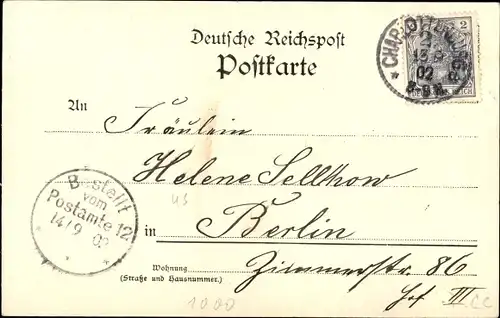 Deutsche Reichspost
Postkarte
CHARLOTTENBURG
2
13.9
02
8-9 N.
2
An
Fräulein
Helene Sellkow
Bestellt
vom
Postamte 12
14/9 02
in Berlin
Wohnung
(Straße und Hausnummer.)
Zimmerstr. 86
Hof III
1000
CC